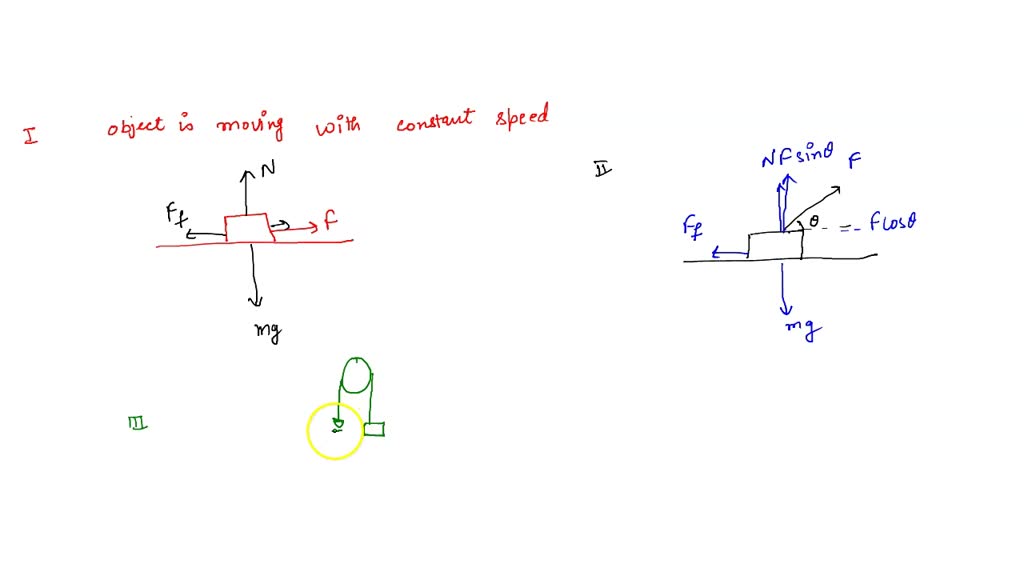 I object is moving with constant speed
N
Ff
F
mg
II
N F sinθ F
Ff
θ = F cosθ
mg
III